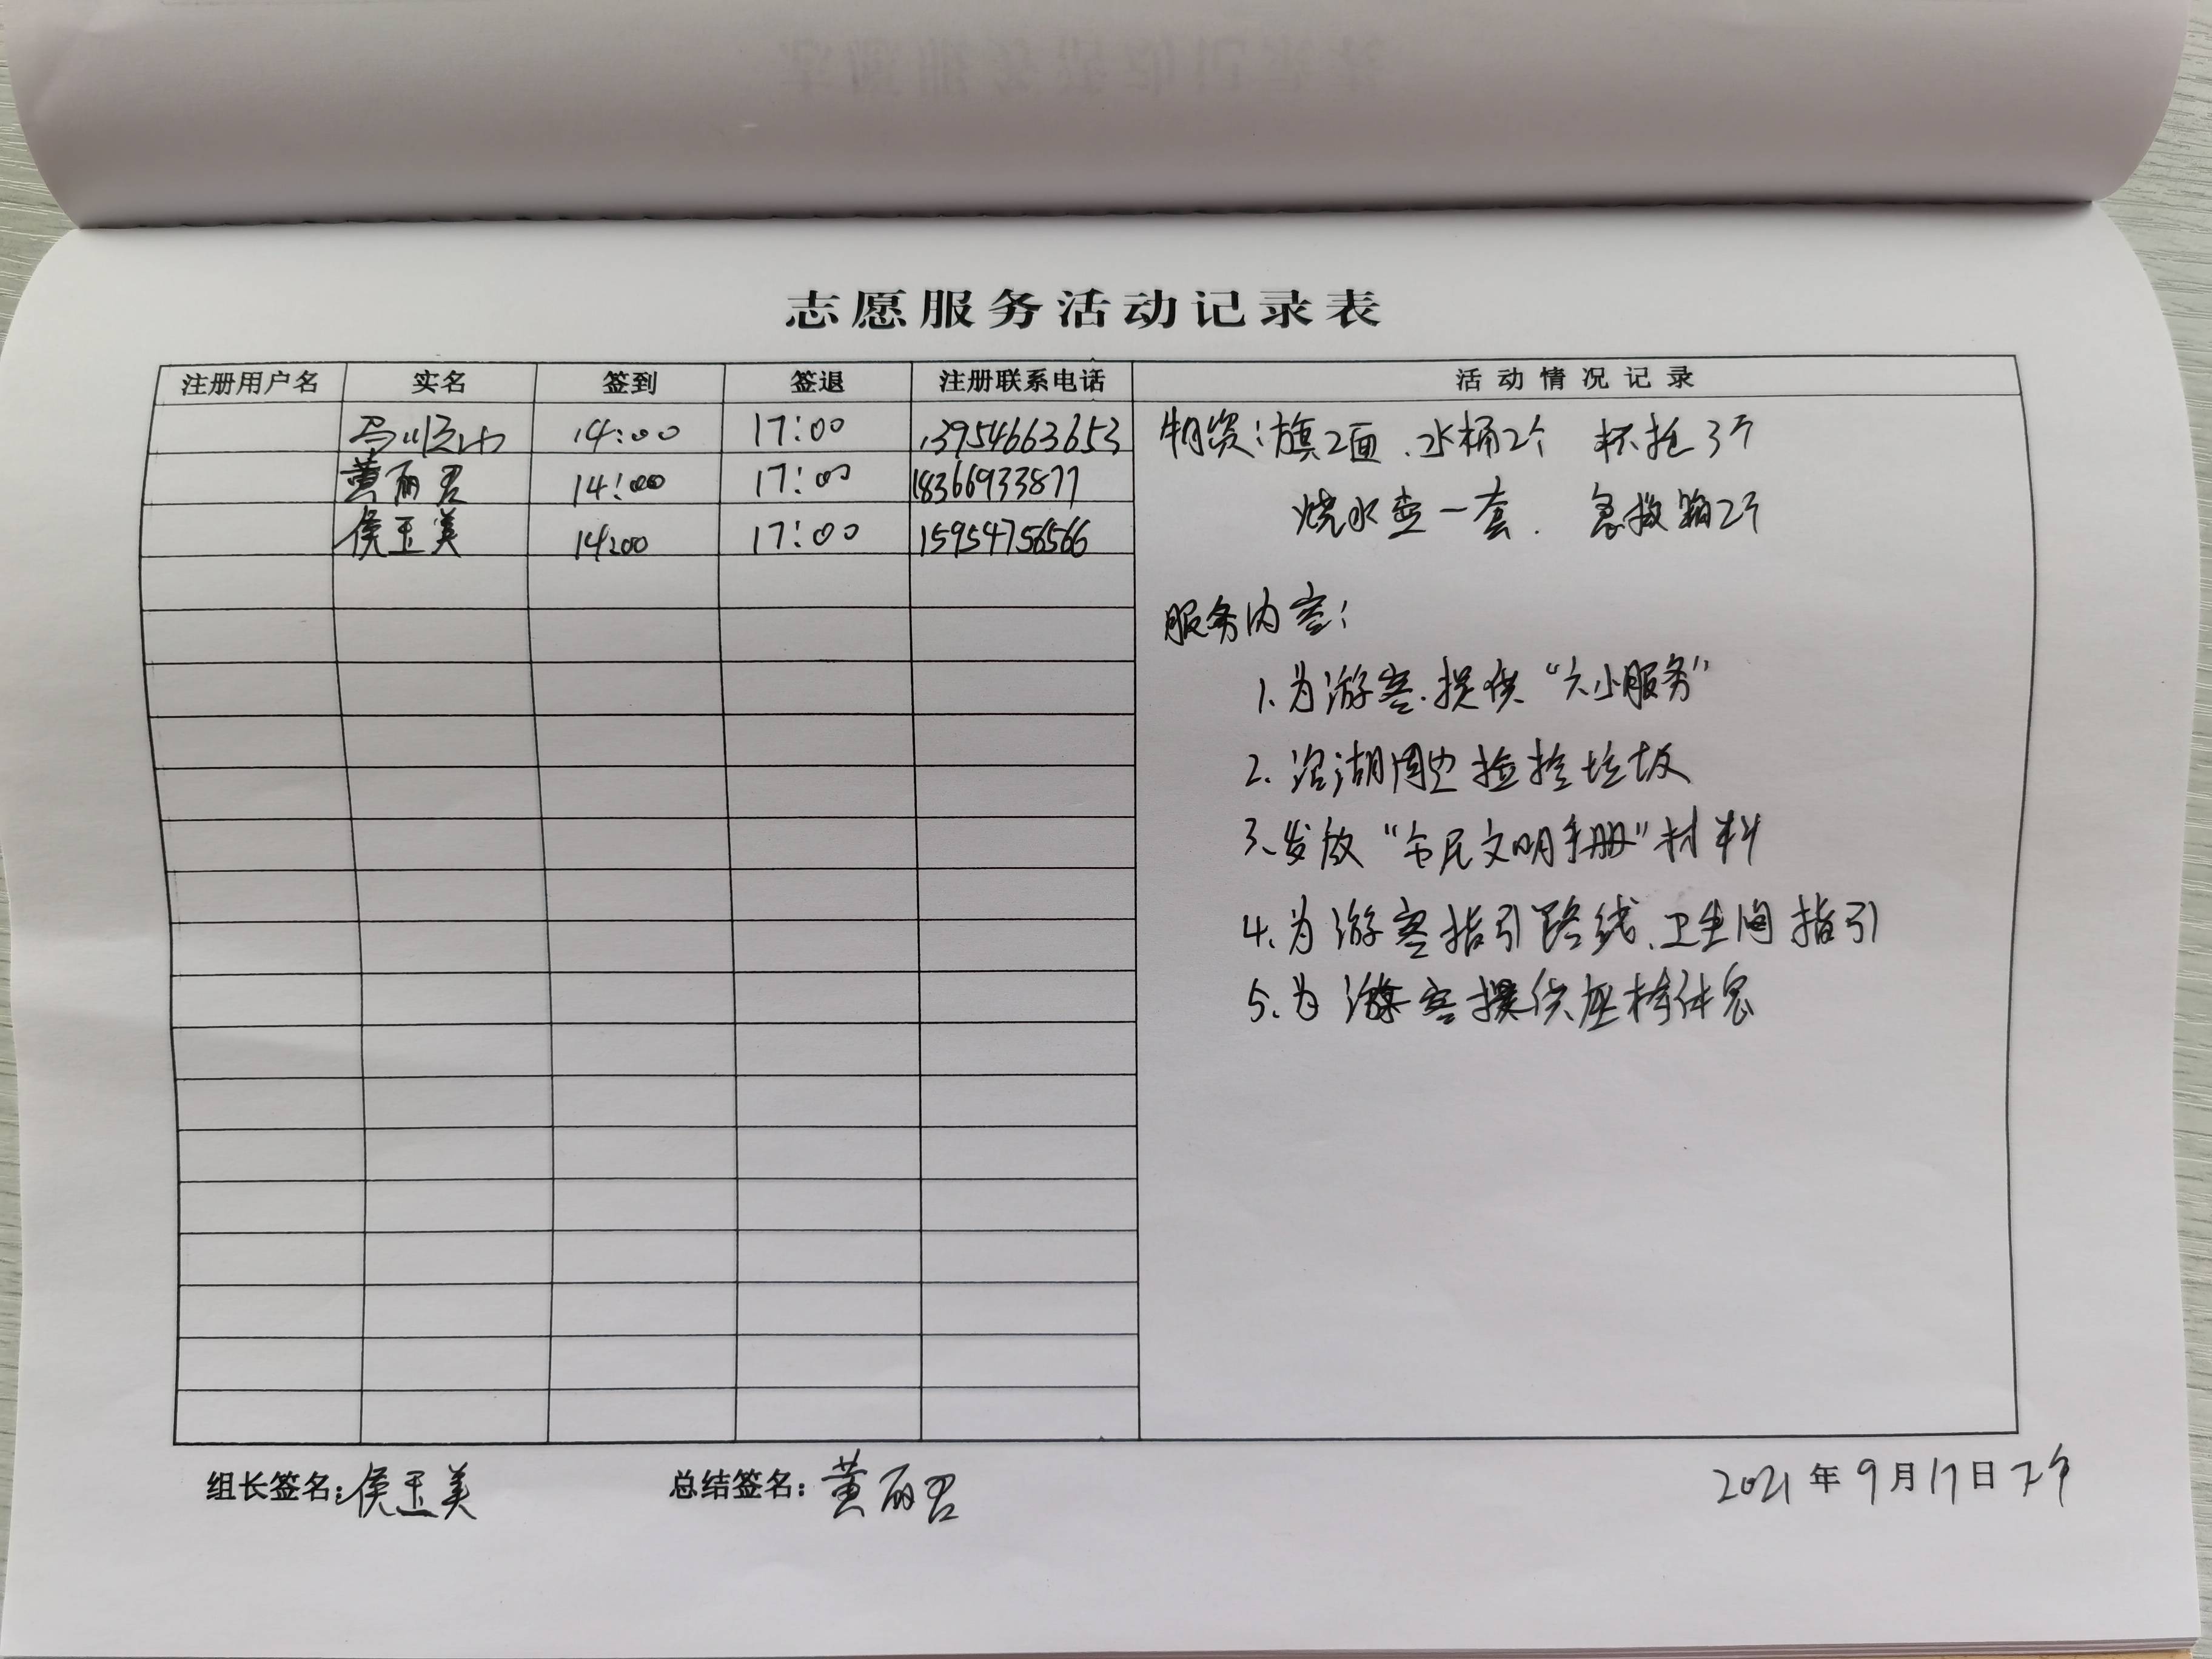 志愿服务活动记录表
注册用户名 实名 签到 签退 注册联系电话 活动情况记录
14:00 17:00 13954663653
黄丽君 14:00 17:00 18366933877
侯玉美 14:00 17:00 15954756566
物资:旗2面、水桶2个 3个
烧水壶一套. 急救箱2个
服务内容:
1.为游客.提供“六小服务”
2.沿湖周边捡拾垃圾
3、发放“市民文明手册”材料
4、为游客指引路线、卫生间指引
5、为游客提供座椅休息
组长签名:侯玉美 总结签名:黄丽君 2021年9月17日下午